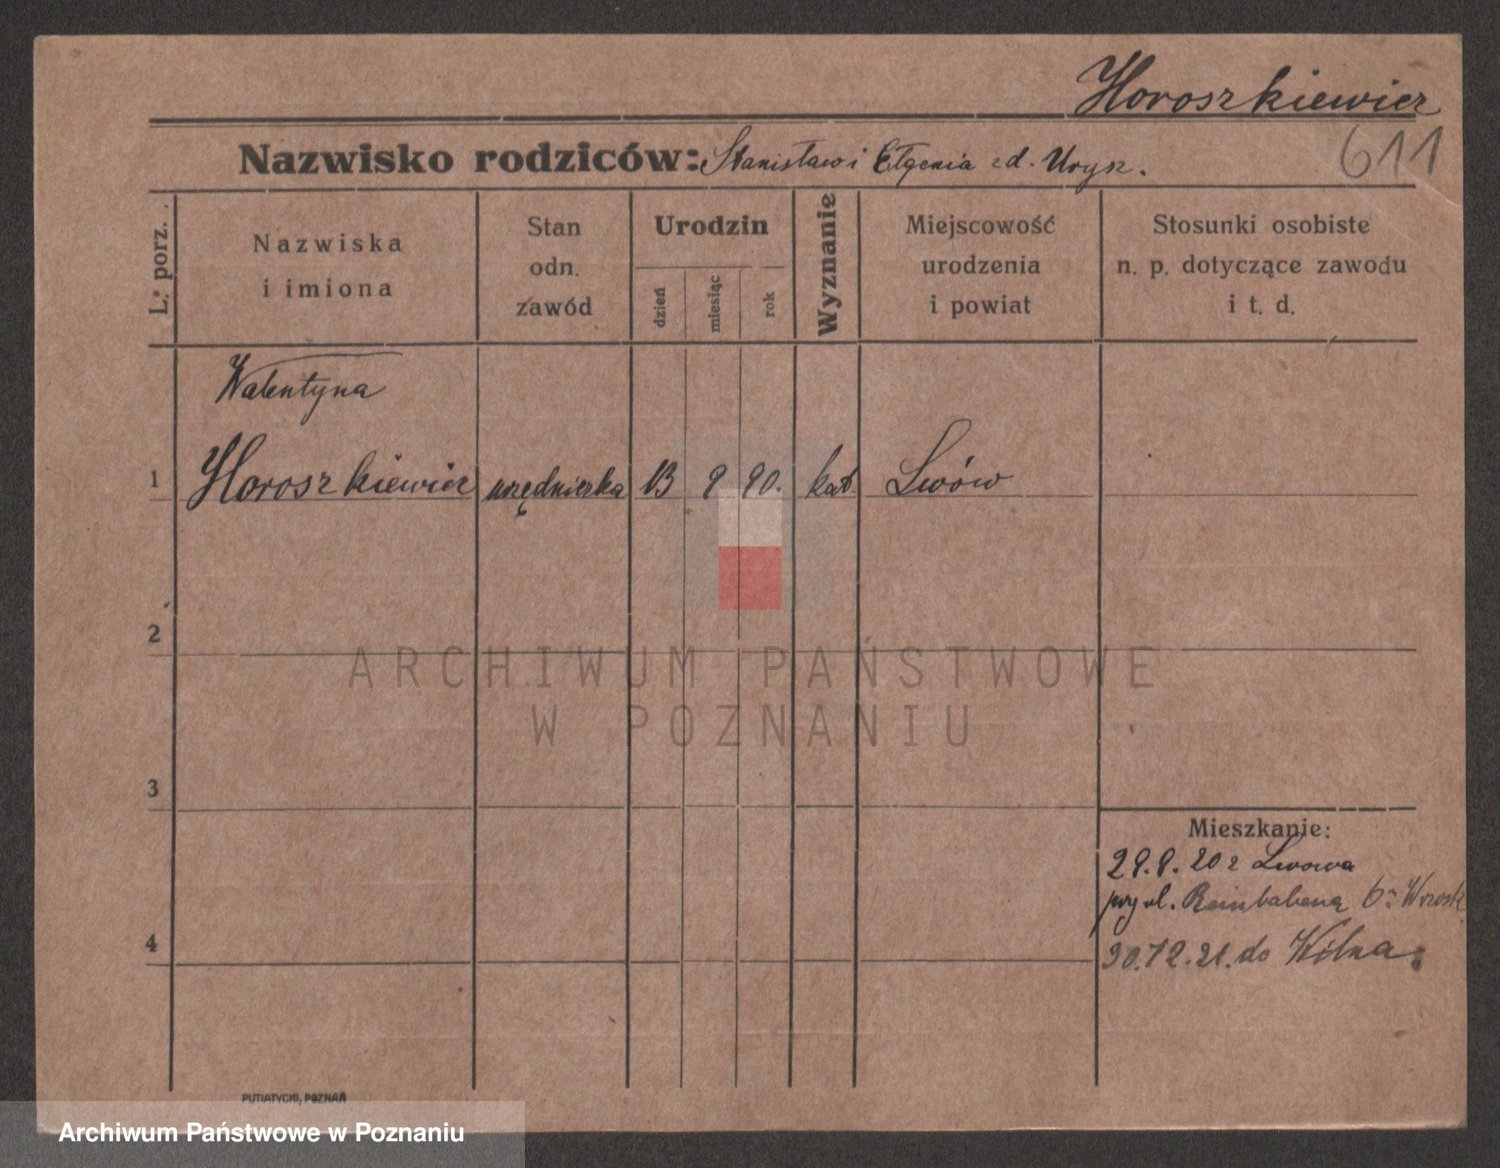 Horoszkiewicz
611
Nazwisko rodziców: Stanisław i Eugenia zd. Urysz.
L: porz.
Nazwiska
i imiona
Stan
odn.
zawód
Urodzin
dzień
miesiąc
rok
Wyznanie
Miejscowość
urodzenia
i powiat
Stosunki osobiste
n. p. dotyczące zawodu
i t. d.
Walentyna
1 Horoszkiewicz urzędniczka 13 9 90. kat. Lwów
2
3
4
Mieszkanie:
29.9.20 z Lwowa
przy ul. 6
30.12.21. do Wilna.
PUTIATYCKI, POZNAŃ
ARCHIWUM PAŃSTWOWE
W POZNANIU
Archiwum Państwowe w Poznaniu